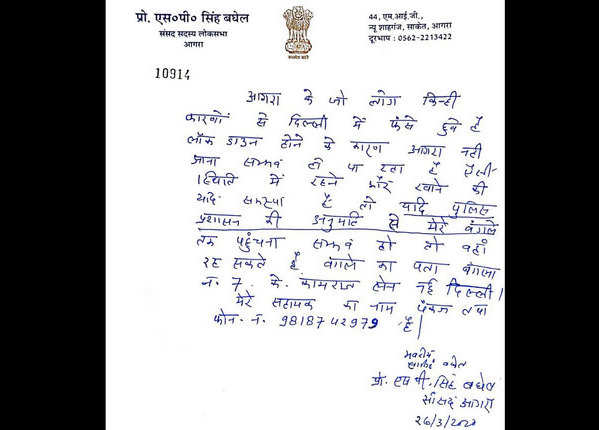 प्रो. एस०पी० सिंह बघेल
संसद सदस्य लोकसभा
आगरा
सत्यमेव जयते
44, एम.आई.जी.,
न्यू शाहगंज, साकेत, आगरा
दूरभाष : 0562-2213422
10914
आगरा के जो लोग किन्ही
कारणों से दिल्ली में फंसे हुवे हैं
लॉक डाउन होने के कारण आगरा नही
आना सम्भव हो पा रहा है ऐसी-
स्थिति में रहने और खाने की
यदि समस्या है तो यदि पुलिस
प्रशासन की अनुमति से मेरे बंगले
तक पहुंचना सम्भव हो तो वहाँ
रह सकते हैं बंगले का पता बंगला
न. 7 के. कामराज लेन नई दिल्ली।
मेरे सहायक का नाम पंकज तथा
फोन. न. 9818742979 है।
भवदीय
प्रो. एस.पी. सिंह बघेल
सांसद आगरा
26/3/2020